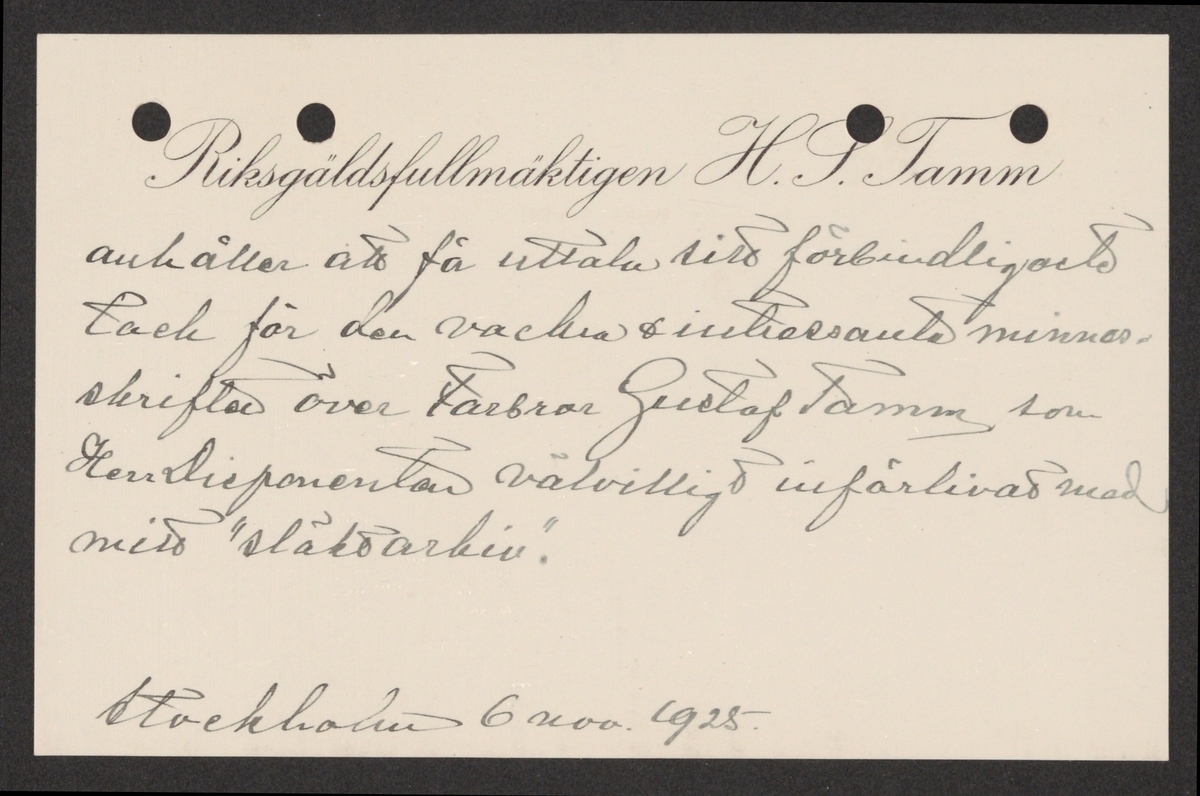 Riksgäldsfullmäktigen H. S. Tamm
anhåller att få uttala sitt förbindligaste
tack för den vackra & intressanta minnes-
skriften över Farbror Gustaf Tamm som
Herr Disponenten välvilligt införlivat med
mitt "släktarkiv".
Stockholm 6 nov. 1925.